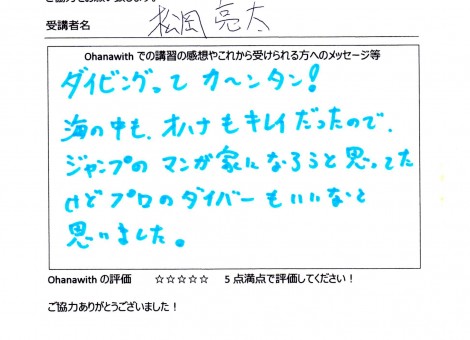 ご協力をお願い致します。
受講者名 松岡 亮太
Ohanawith での講習の感想やこれから受けられる方へのメッセージ等
ダイビングって カ〜ンタン!
海の中も、オハナもキレイだったので、
ジャンプのマンガ家になろうと思ってた
けどプロのダイバーもいいなと
思いました。
Ohanawith の評価 ☆☆☆☆☆ 5 点満点で評価してください!
ご協力ありがとうございました!